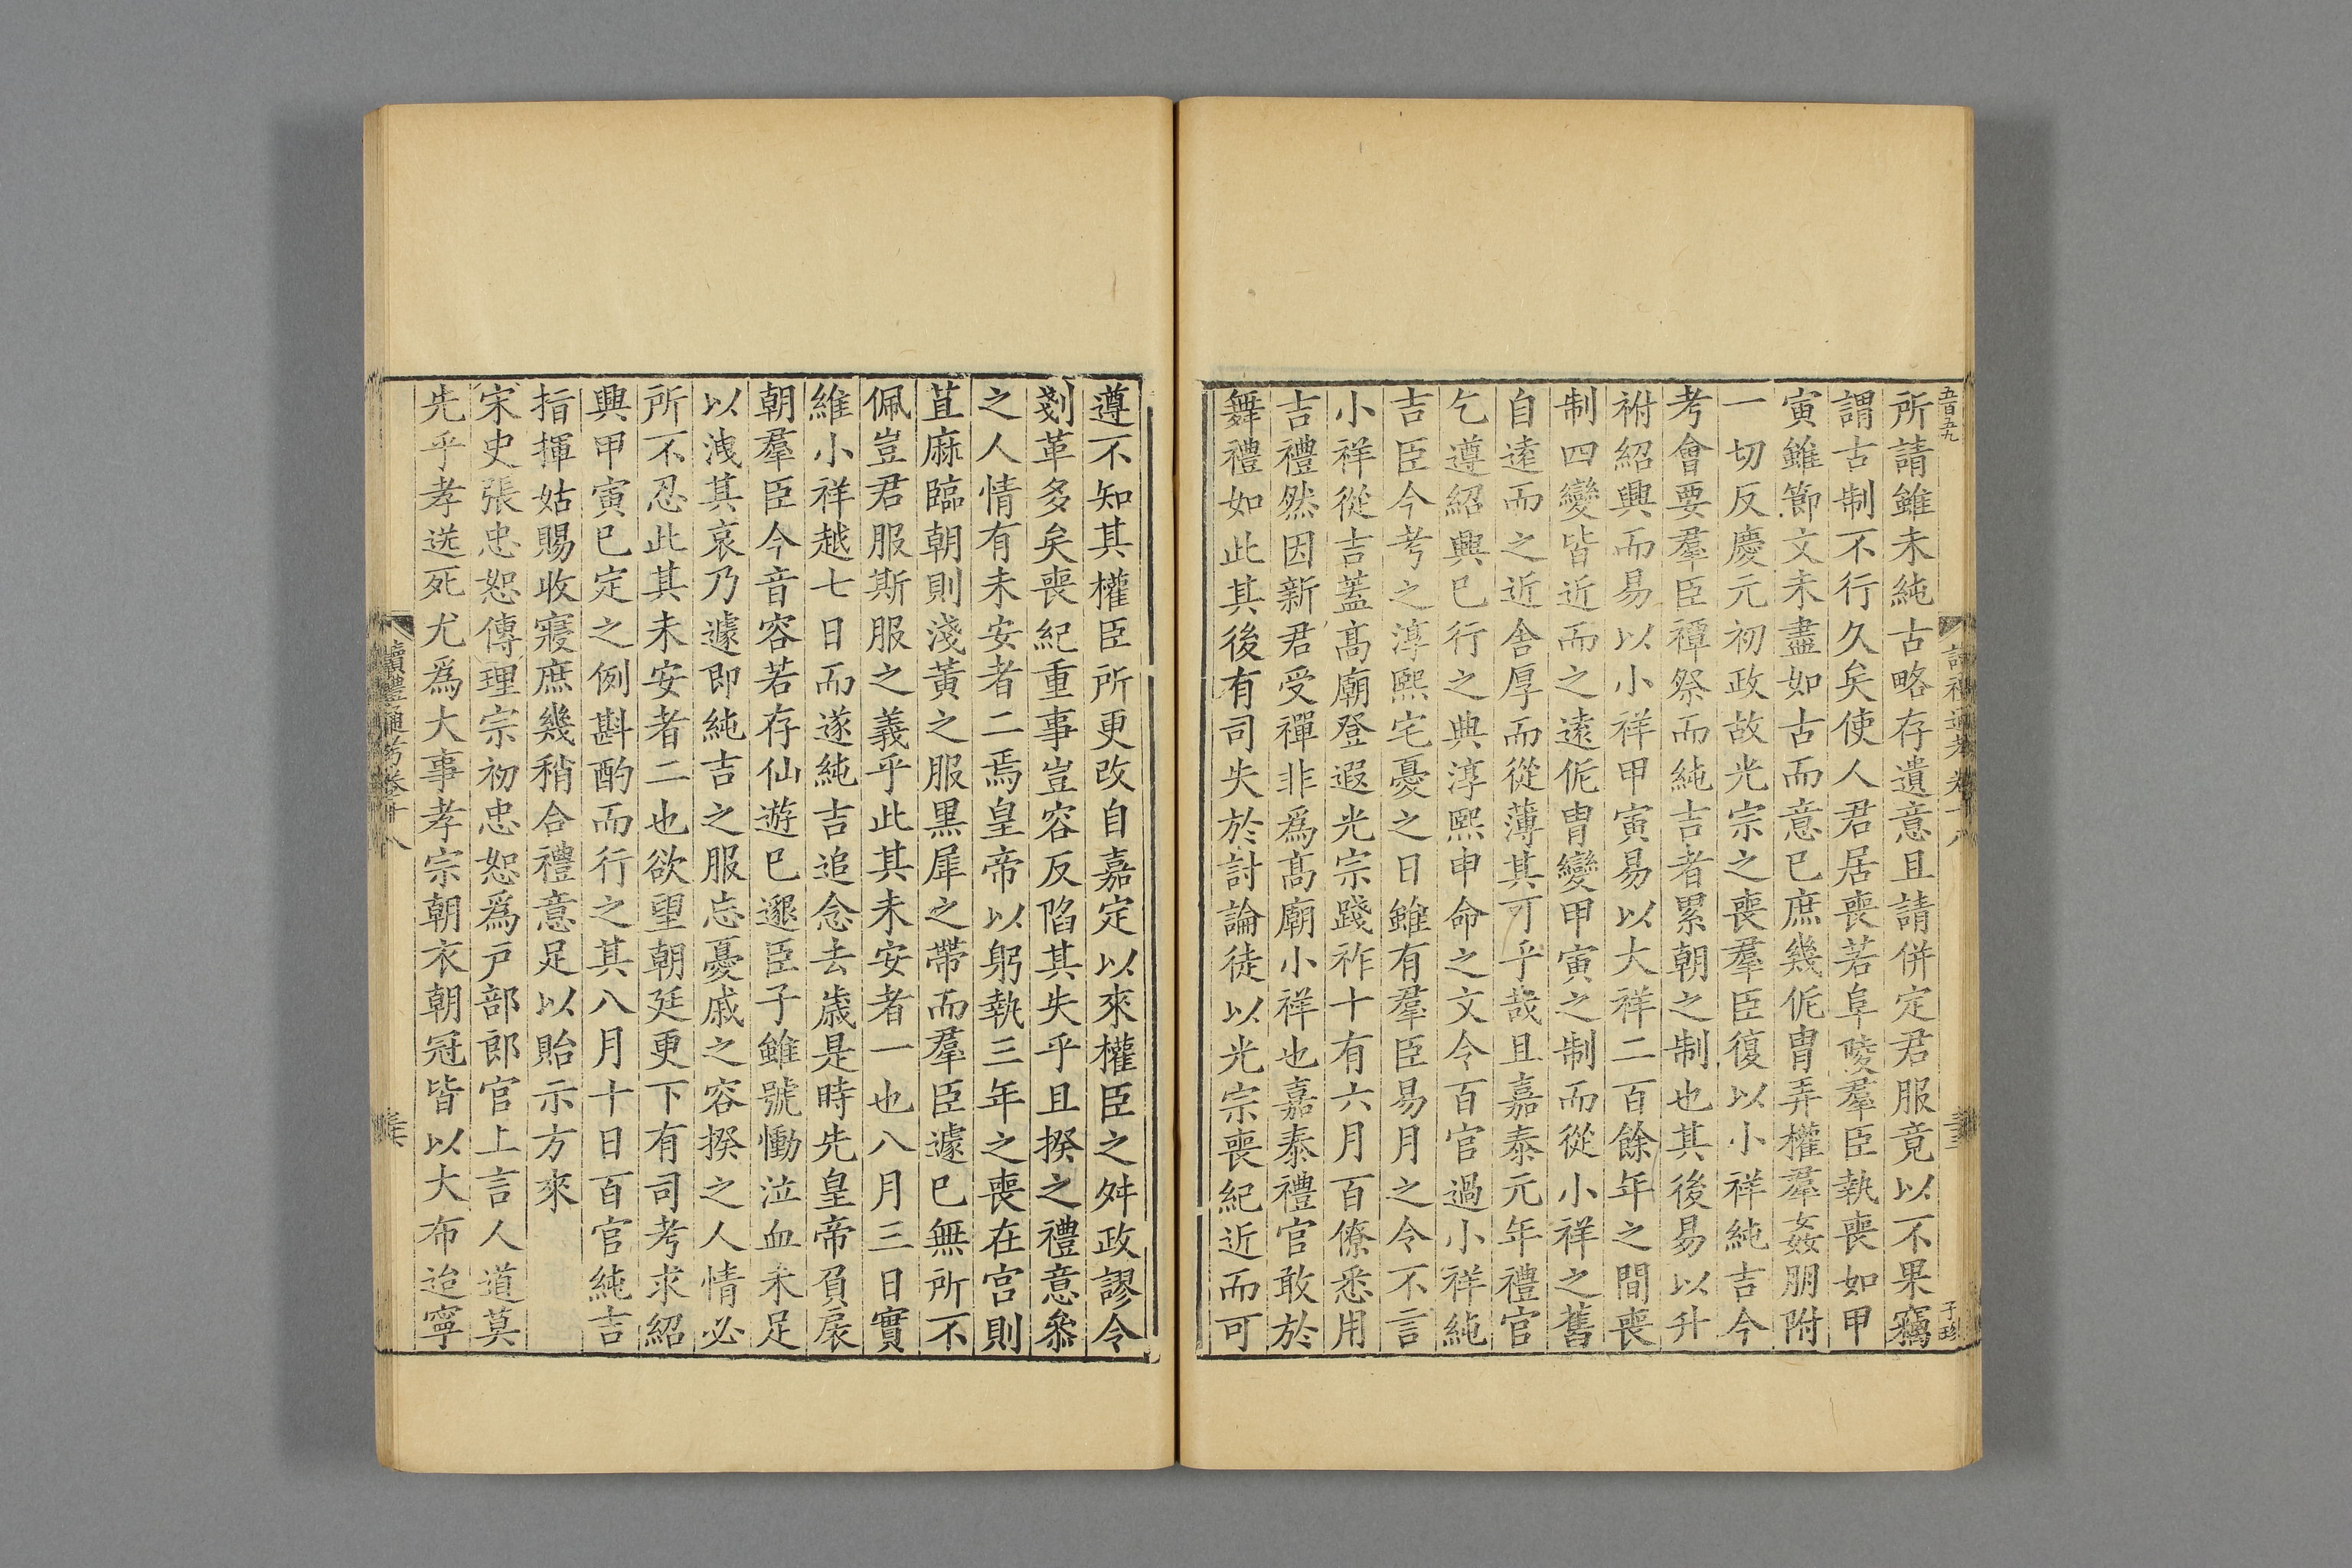 五百五九
子珍
所請雖未純古略存遺意且請併定君服竟以不果竊
謂古制不行久矣使人君居喪若阜陵羣臣執喪如甲
寅雖節文未盡如古而意已庶幾侂胄弄權羣姦朋附
一切反慶元初政故光宗之喪羣臣復以小祥純吉今
考會要羣臣禫祭而純吉者累朝之制也其後易以升
祔紹興而易以小祥甲寅易以大祥二百餘年之間喪
制四變皆近而之遠侂胄變甲寅之制而從小祥之舊
自遠而之近舍厚而從薄其可乎哉且嘉泰元年禮官
乞遵紹興已行之典淳熙申命之文令百官過小祥純
吉臣今考之淳熙宅憂之日雖有羣臣易月之令不言
小祥從吉蓋高廟登遐光宗踐祚十有六月百僚悉用
吉禮然因新君受禪非為高廟小祥也嘉泰禮官敢於
舞禮如此其後有司失於討論徒以光宗喪紀近而可
遵不知其權臣所更改自嘉定以來權臣之舛政謬令
剗革多矣喪紀重事豈容反陷其失乎且揆之禮意叅
之人情有未安者二焉皇帝以躬執三年之喪在宫則
苴麻臨朝則淺黃之服黑犀之帶而羣臣遽已無所不
佩豈君服斯服之義乎此其未安者一也八月三日實
維小祥越七日而遂純吉追念去歳是時先皇帝負扆
朝羣臣今音容若存仙遊已邈臣子雖號慟泣血未足
以洩其哀乃遽即純吉之服忘憂戚之容揆之人情必
所不忍此其未安者二也欲望朝廷更下有司考求紹
興甲寅已定之例斟酌而行之其八月十日百官純吉
指揮姑賜收寢庶幾稍合禮意足以貽示方來
宋史張忠恕傳理宗初忠恕爲戸部郎官上言人道莫
先乎孝送死尤爲大事孝宗朝衣朝冠皆以大布迨寧
讀禮通考卷十八